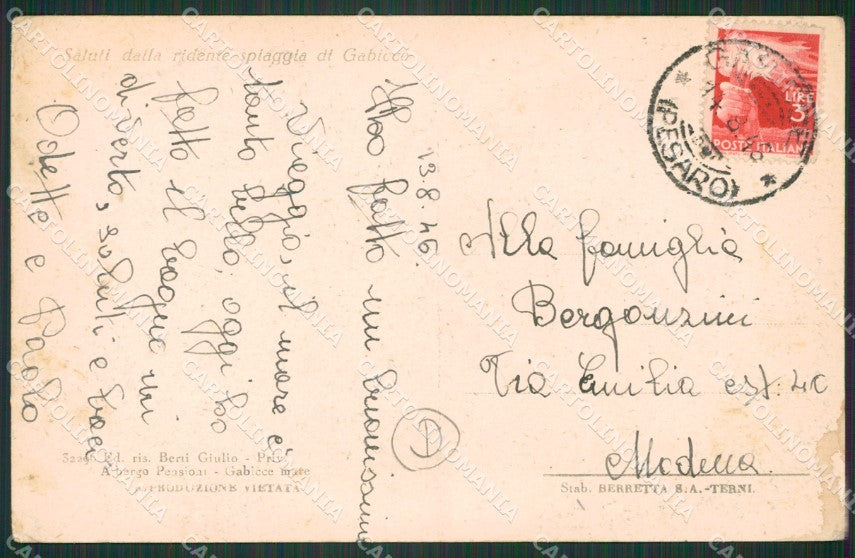 Saluti dalla ridente spiaggia di Gabicce
13.8.46.
Ho fatto un buonissimo
viaggio, il mare è
tanto bello, oggi ho
fatto il bagno mi
diverto, saluti e baci
Odette e Paolo
Alla famiglia
Bergonzini
Via Emilia est. 40
Modena.
LIRE 3
POSTE ITALIANE
(PESARO)
Ed. ris. Berti Giulio - Priv.
Albergo Pensioni - Gabicce mare
RIPRODUZIONE VIETATA
Stab. BERRETTA S.A.-TERNI.
CARTOLINOMANIA